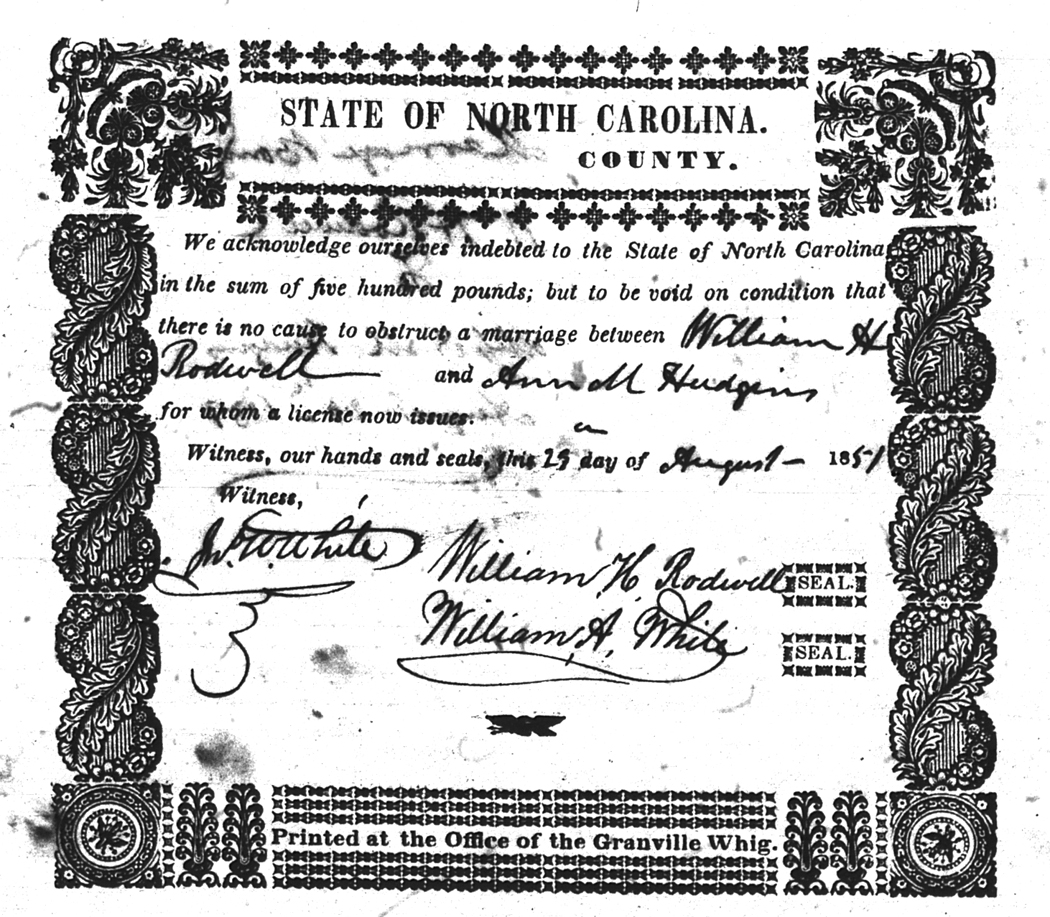 STATE OF NORTH CAROLINA.
COUNTY.
We acknowledge ourselves indebted to the State of North Carolina
in the sum of five hundred pounds; but to be void on condition that
there is no cause to obstruct a marriage between William H
Rodwell and Ann M Hudgins
for whom a license now issues.
Witness, our hands and seals, this 25 day of August 1851
Witness,
Jn. W. White
William H. Rodwell SEAL.
William A. White SEAL.
Printed at the Office of the Granville Whig.